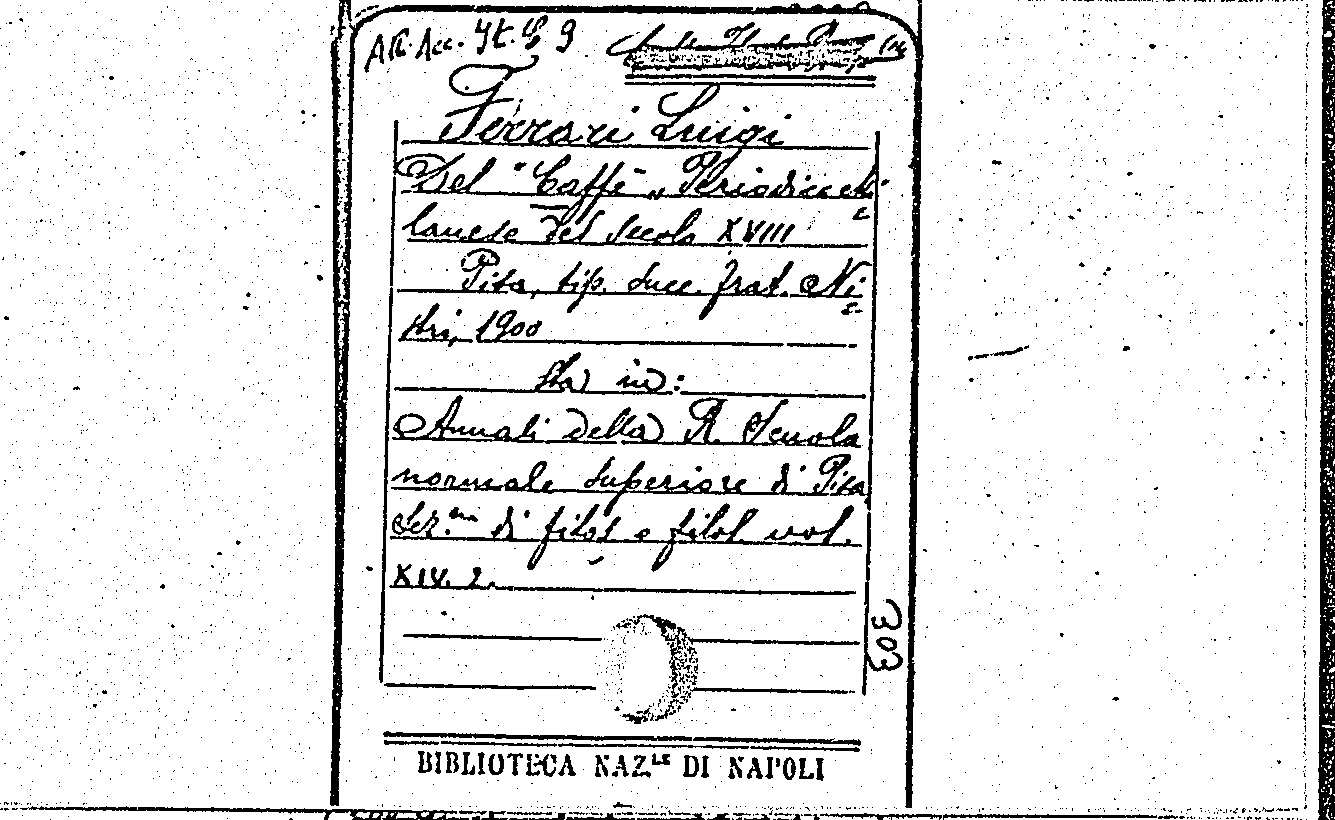 Att. Acc. It. C 9
Ferrari Luigi
Del "Caffè„ Periodico Mi-
lanese del Secolo XVIII
Pisa, tip. succ. frat. Ni-
stri, 1900
Sta in:
Annali della R. Scuola
normale superiore di Pisa
Sez.ne di filos e filol vol.
XIV. 2.
303
BIBLIOTECA NAZLE DI NAPOLI